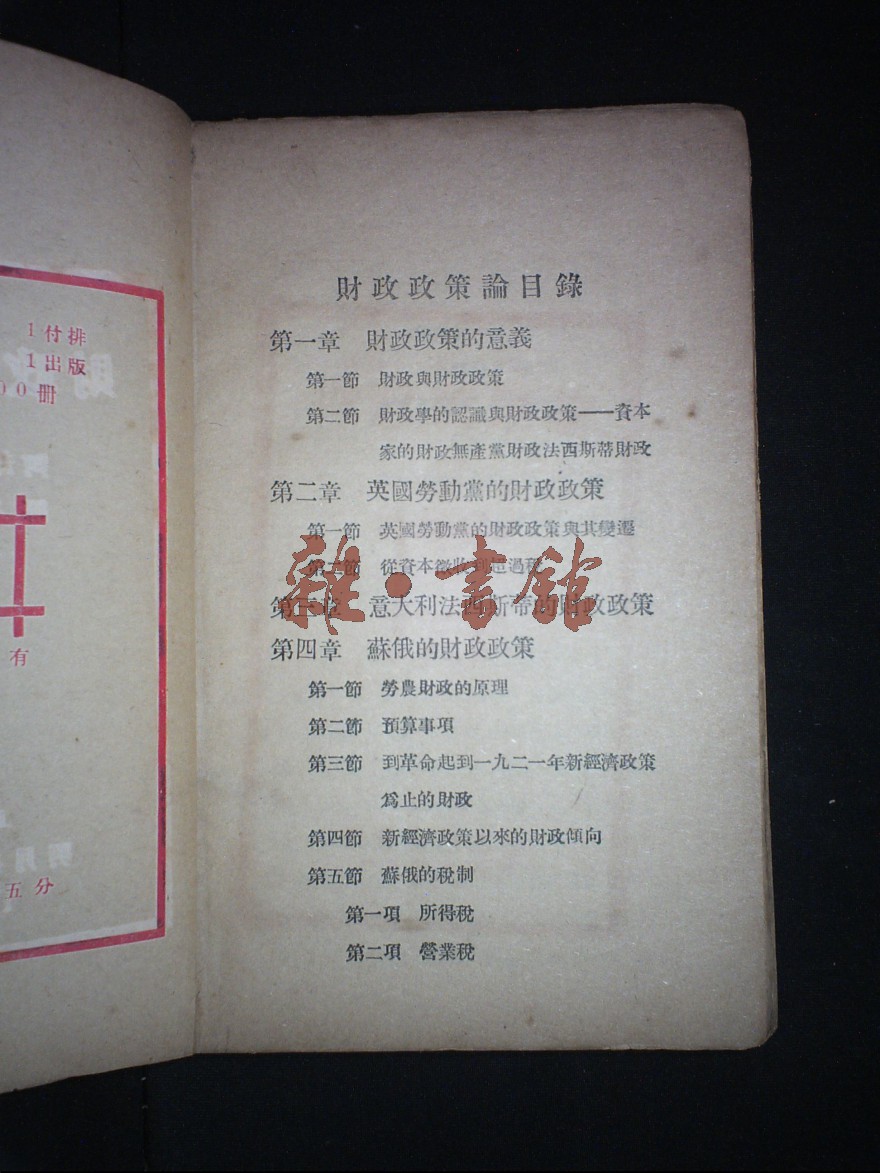 1付排
1出版
00冊
有
五分
財政政策論目錄
第一章 財政政策的意義
第一節 財政與財政政策
第二節 財政學的認識與財政政策——資本
家的財政無產黨財政法西斯蒂財政
第二章 英國勞動黨的財政政策
第一節 英國勞動黨的財政政策與其變遷
第二節 從資本徵收到超過稅
第三章 意大利法西斯蒂的財政政策
第四章 蘇俄的財政政策
第一節 勞農財政的原理
第二節 預算事項
第三節 到革命起到一九二一年新經濟政策
為止的財政
第四節 新經濟政策以來的財政傾向
第五節 蘇俄的稅制
第一項 所得稅
第二項 營業稅
雜·書館